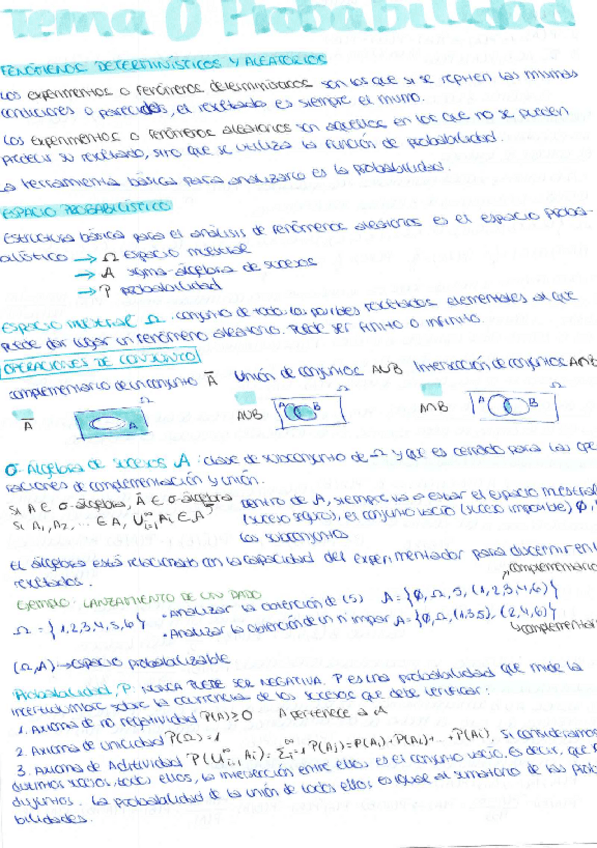 Tema 0 Probabilidad
FENÓMENOS DETERMINÍSTICOS Y ALEATORIOS
Los experimentos o fenómenos determinísticos son los que si se repiten las mismas
condiciones o parecidas, el resultado es siempre el mismo.
Los experimentos o fenómenos aleatorios son aquellos en los que no se pueden
predecir su resultado, sino que se utiliza la función de probabilidad.
La herramienta básica para analizarlo es la probabilidad.
ESPACIO PROBABILÍSTICO
Estructura básica para el análisis de fenómenos aleatorios es el espacio proba-
bilístico → Ω espacio muestral
→ A sigma-álgebra de sucesos
→ P probabilidad
Espacio muestral Ω: conjunto de todos los posibles resultados elementales al que
puede dar lugar un fenómeno aleatorio. Puede ser finito o infinito.
OPERACIONES DE CONJUNTO
complementario de un conjunto Ā Unión de conjuntos AUB Intersección de conjuntos A∩B
Ω Ω Ω
Ā A AUB A B A∩B A B
σ-Álgebra de sucesos A: clase de subconjunto de Ω y que es cerrado para las ope
raciones de complementación y unión.
Si A ∈ σ-álgebra, Ā ∈ σ-álgebra dentro de A, siempre va a estar el espacio muestral
Si A₁, A₂, ... ∈ A, U∞i=1 Ai ∈ A (suceso seguro), el conjunto vacío (suceso imposible) ∅,
los subconjuntos
El álgebra está relacionado con la capacidad del experimentador para discernir en
resultados.
complementario
Ejemplo: LANZAMIENTO DE UN DADO
Ω = {1,2,3,4,5,6} • Analizar la obtención de (5) A = {∅, Ω, 5, (1,2,3,4,6)}
• Analizar la obtención de un nº impar A = {∅, Ω, (1,3,5), (2,4,6)}
complementari
(Ω, A) → espacio probabilizable
Probabilidad, P: NUNCA PUEDE SER NEGATIVA. P es una probabilidad que mide la
incertidumbre sobre la ocurrencia de los sucesos que debe verificar:
1. Axioma de no negatividad P(A) ≥ 0 A pertenece a A
2. Axioma de unicidad P(Ω) = 1
3. Axioma de Aditividad P(U∞i=1 Ai) = Σ∞i=1 P(Ai) = P(A₁) + P(A₂) + ... + P(Ai). Si consideramos
distintos sucesos, todos ellos, la intersección entre ellos es el conjunto vacío. Es decir, que
disjuntos. La probabilidad de la unión de todos ellos es igual al sumatorio de las prob
bilidades.